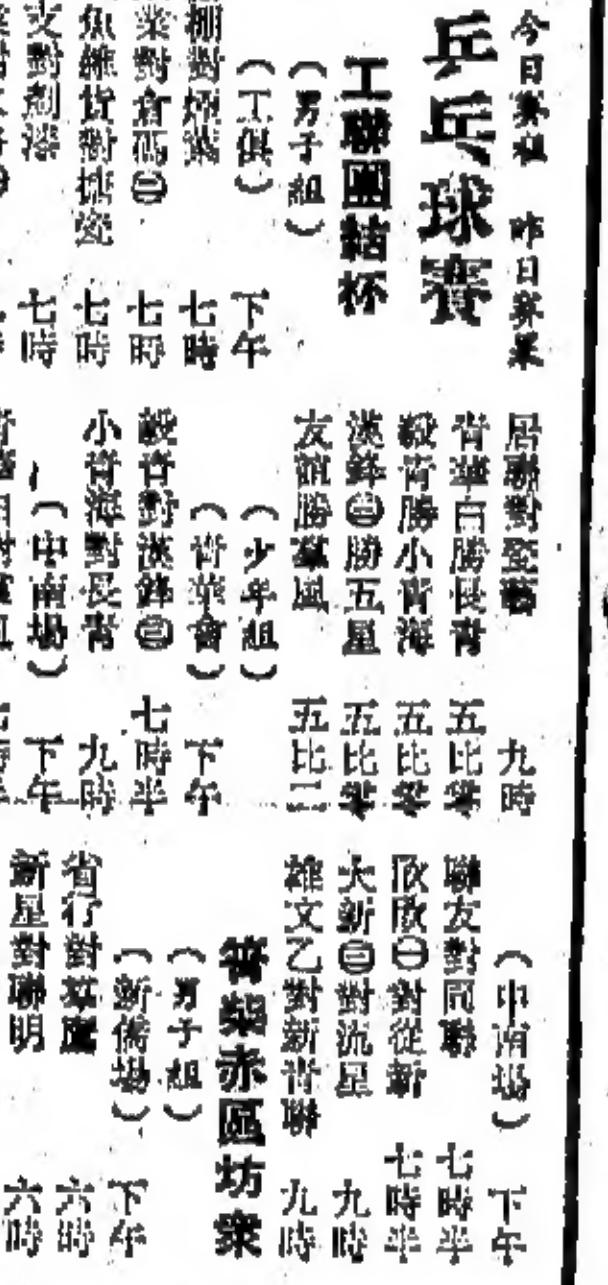 今日賽程 昨日賽果
乒乓球賽
工聯團結杯
（男子組）
（工俱） 下午
棚對 七時
業對倉 ㊂ 七時
魚雜貨對搪瓷 七時
文對 漆 七時
居聯對 九時
青華白勝長青 五比零
毅青勝小青海 五比零
漢鋒㊂勝五星 五比零
友誼勝 風 五比二
（少年組）
（青華會） 下午
毅青對漢鋒㊂ 七時半
小青海對長青 九時
（中南場） 下午
（中南場） 下午
聯友對同聯 七時半
欣欣㊀對從新 七時半
大新㊂對流星 九時
雄文乙對新青聯 九時
筲柴赤區坊衆
（男子組）
（新僑場） 下午
省行對 鷹 六時
新星對聯明 六時